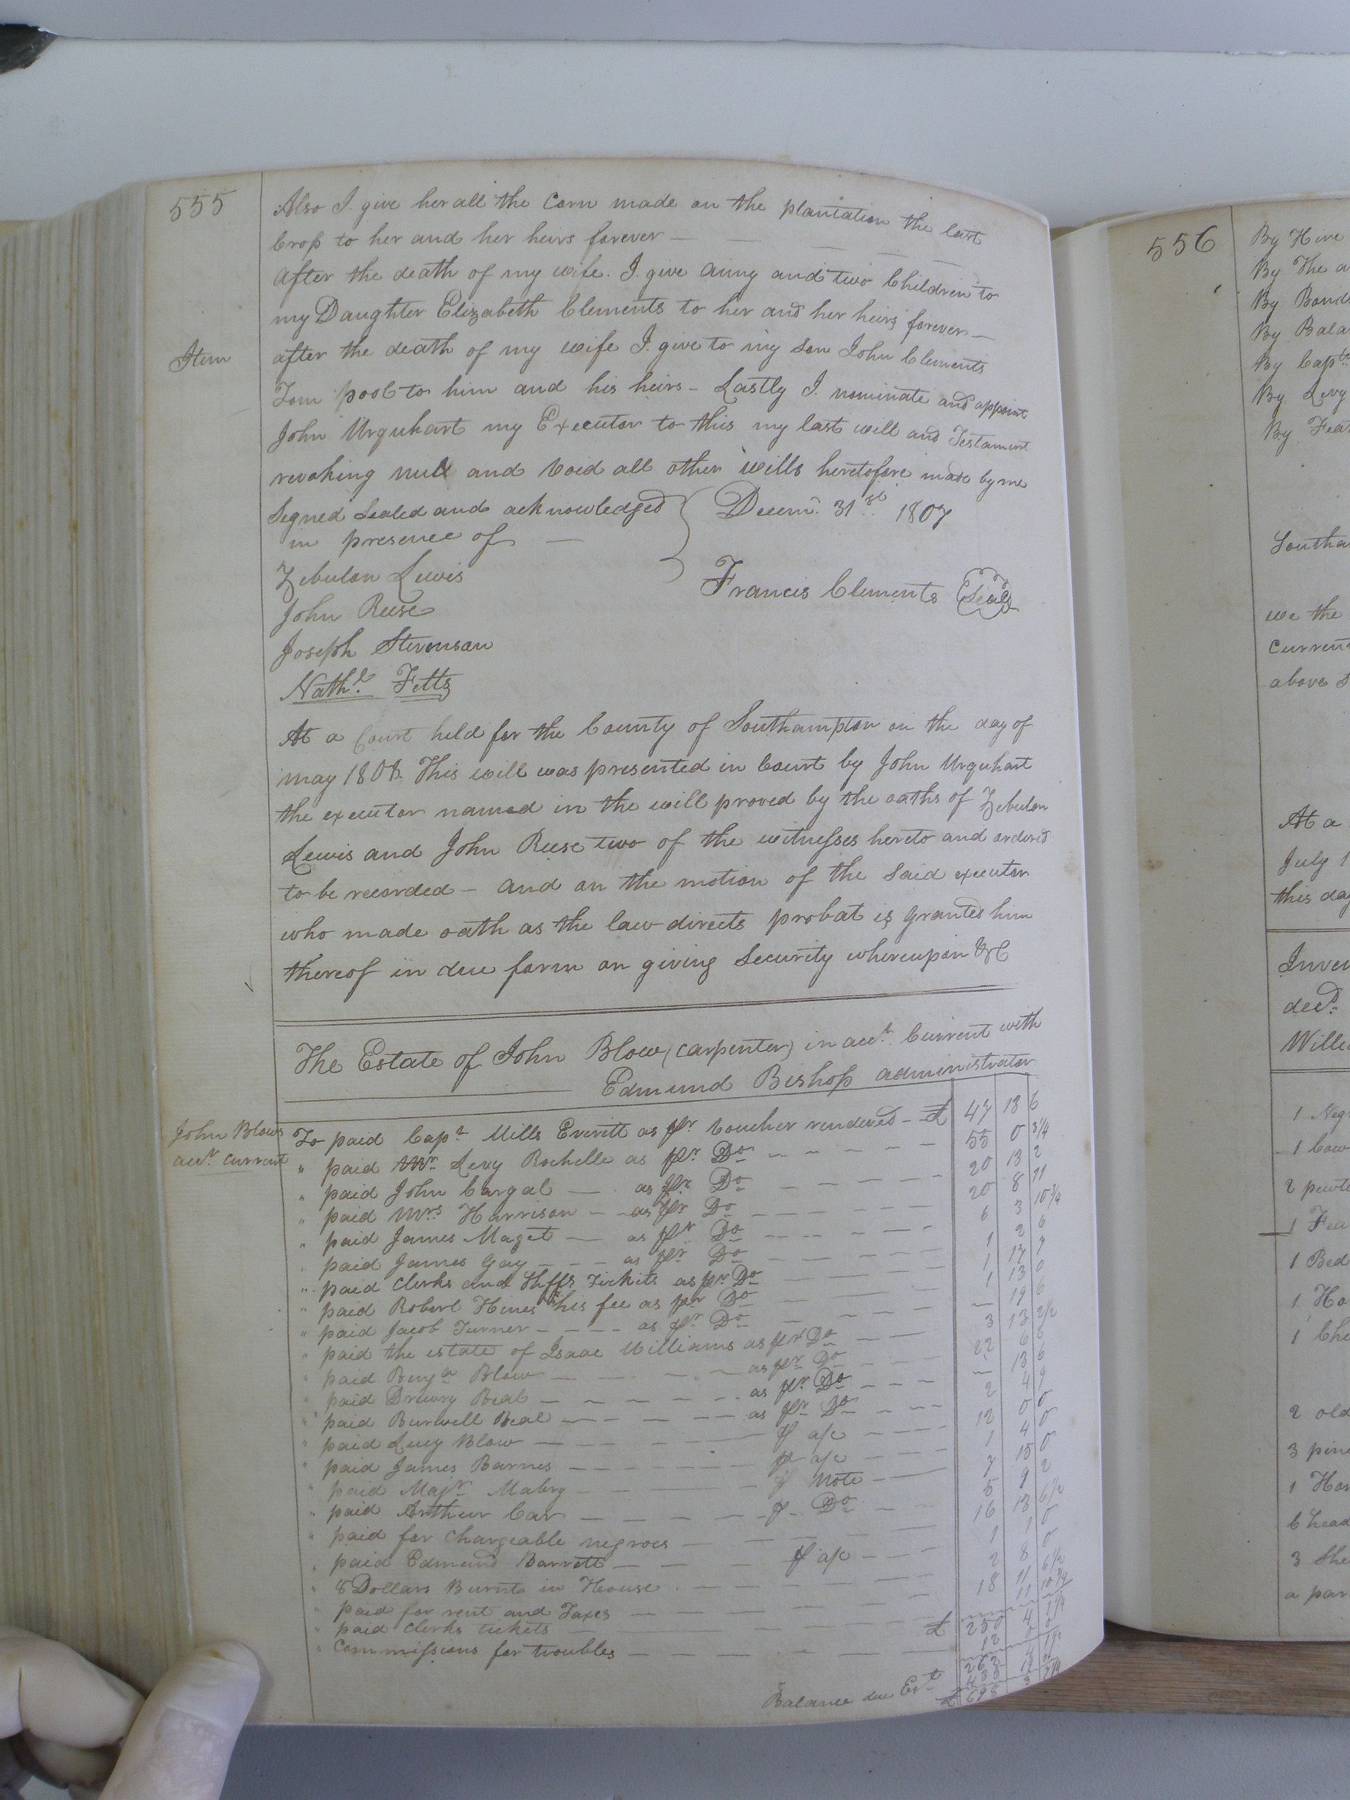 555
Also I give her all the Corn made on the plantation the last
Crop to her and her heirs forever —
After the death of my wife. I give Amy and two Children to
my Daughter Elizabeth Clements to her and her heirs forever —
Item
after the death of my wife I give to my son John Clements
Tom pool to him and his heirs - Lastly I nominate and appoint
John Urquhart my Executor to this my last will and Testament
revoking null and void all other wills heretofore made by me
Signed Sealed and acknowledged
in presence of —
Decemr. 31st. 1807
Zebulon Lewis
Francis Clements Seal
John Reese
Joseph Stevenson
Nathl. Fetts
At a Court held for the County of Southampton on the day of
may 1808. This will was presented in Court by John Urquhart
the executor named in the will proved by the oaths of Zebulon
Lewis and John Reese two of the witnesses hereto and ordered
to be recorded — and on the motion of the said executor
who made oath as the law directs probat is granted him
thereof in due form on giving Security whereupon &C
The Estate of John Blow (carpenter) in acct. Current with
Edmund Bishop administrator
John Blows
acct current
To paid Capt Mills Everitt as pr Voucher rendered — £ 47 18 6
" paid Mr. Levy Rochelle as pr Do 55 0 3/4
" paid John Cargal — as pr Do 20 13 2
" paid Mrs Harrison — as pr Do 20 8 11
" paid James Maget — as pr Do 6 3 10 3/4
" paid James Gay — as pr Do 1 2 6
" paid Clerks and Shffs Tickits as pr Do 1 17 7
" paid Robert Hines his fee as pr Do 1 13 0
" paid Jacob Turner — as pr Do — 19 6
" paid the estate of Isaac Williams as pr Do 3 13
" paid Benja Blow — as pr Do 22 6 6
" paid Drewry Beal — as pr Do — 18 6
" paid Burwell Beal — as pr Do 2 4 9
" paid Lucy Blow — p a/c 12 0 0
" paid James Barnes — p a/c 1 4 0
" paid Majr Mabry — p Note 7 15 0
" paid Arthur Car — p Do 5 9 2
" paid for chargeable negroes 16 13 6 1/2
" paid Edmund Barrett — p a/c 1 1 0
" 8 Dollars Burnt in House 2 8 0
" paid for rent and Taxes 18 11 6 1/2
" paid Clerks tickets
" Commissions for troubles
£ 250
Balance due Est
556
By Hire
By The
By Bond
By Bala
By Capt
By Levy
By Fea
Southa
we the
Curren
above
At a
July 1
this day
Inven
decd.
Willi
1 Neg
1 Cow
2 pewte
1 Fea
1 Bed
1 Ho
1 Che
2 old
3 pin
1 Ho
6 head
3 She
a par